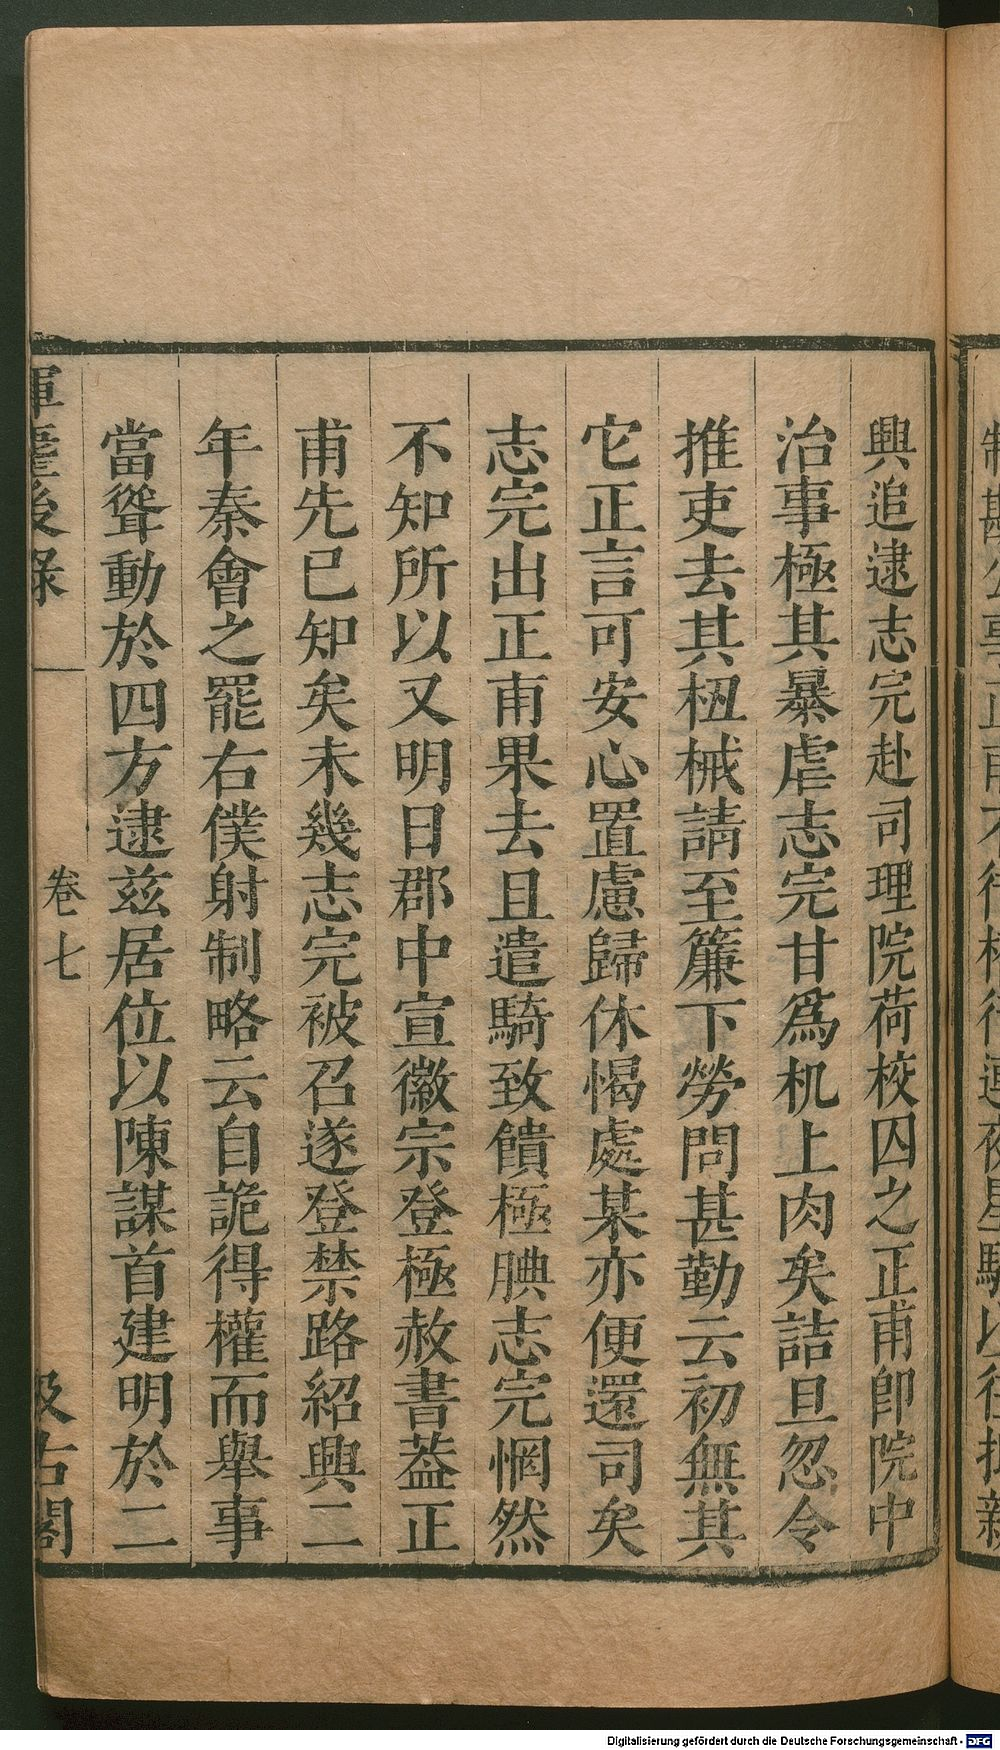 興追逮志完赴司理院荷校囚之正甫卽院中
治事極其暴虐志完甘爲机上肉矣詰旦忽令
推吏去其杻械請至簾下勞問甚勤云初無其
它正言可安心置慮歸休愒處某亦便還司矣
志完出正甫果去且遣騎致饋極腆志完惘然
不知所以又明日郡中宣徽宗登極赦書葢正
甫先已知矣未幾志完被召遂登禁路紹興二
年秦會之罷右僕射制略云自詭得權而舉事
當聳動於四方逮兹居位以陳謀首建明於二
揮麈後錄
卷七
汲古閣
Digitalisierung gefördert durch die Deutsche Forschungsgemeinschaft - DFG